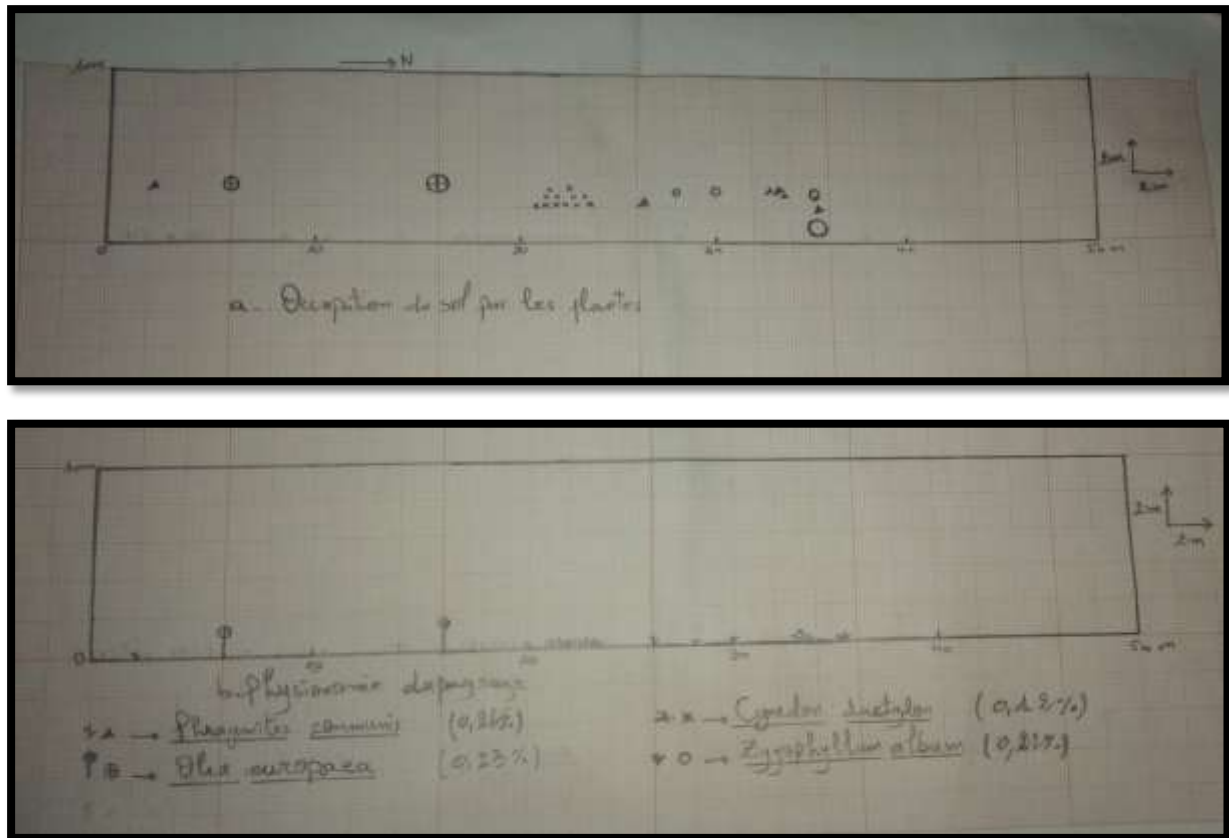 N
2m
2m
0 10 20 40 50 m
a. Occupation du sol par les plantes
2m
2m
0 10 20 40 50 m
b. Physionomie du paysage
→ Phragmites communis (0,26%)
→ Olea europaea (0,23%)
→ Cynodon dactylon (0,12%)
→ Zygophyllum album (0,21%)